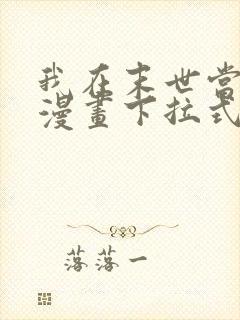 我在末世當
漫畫下拉式
落落一